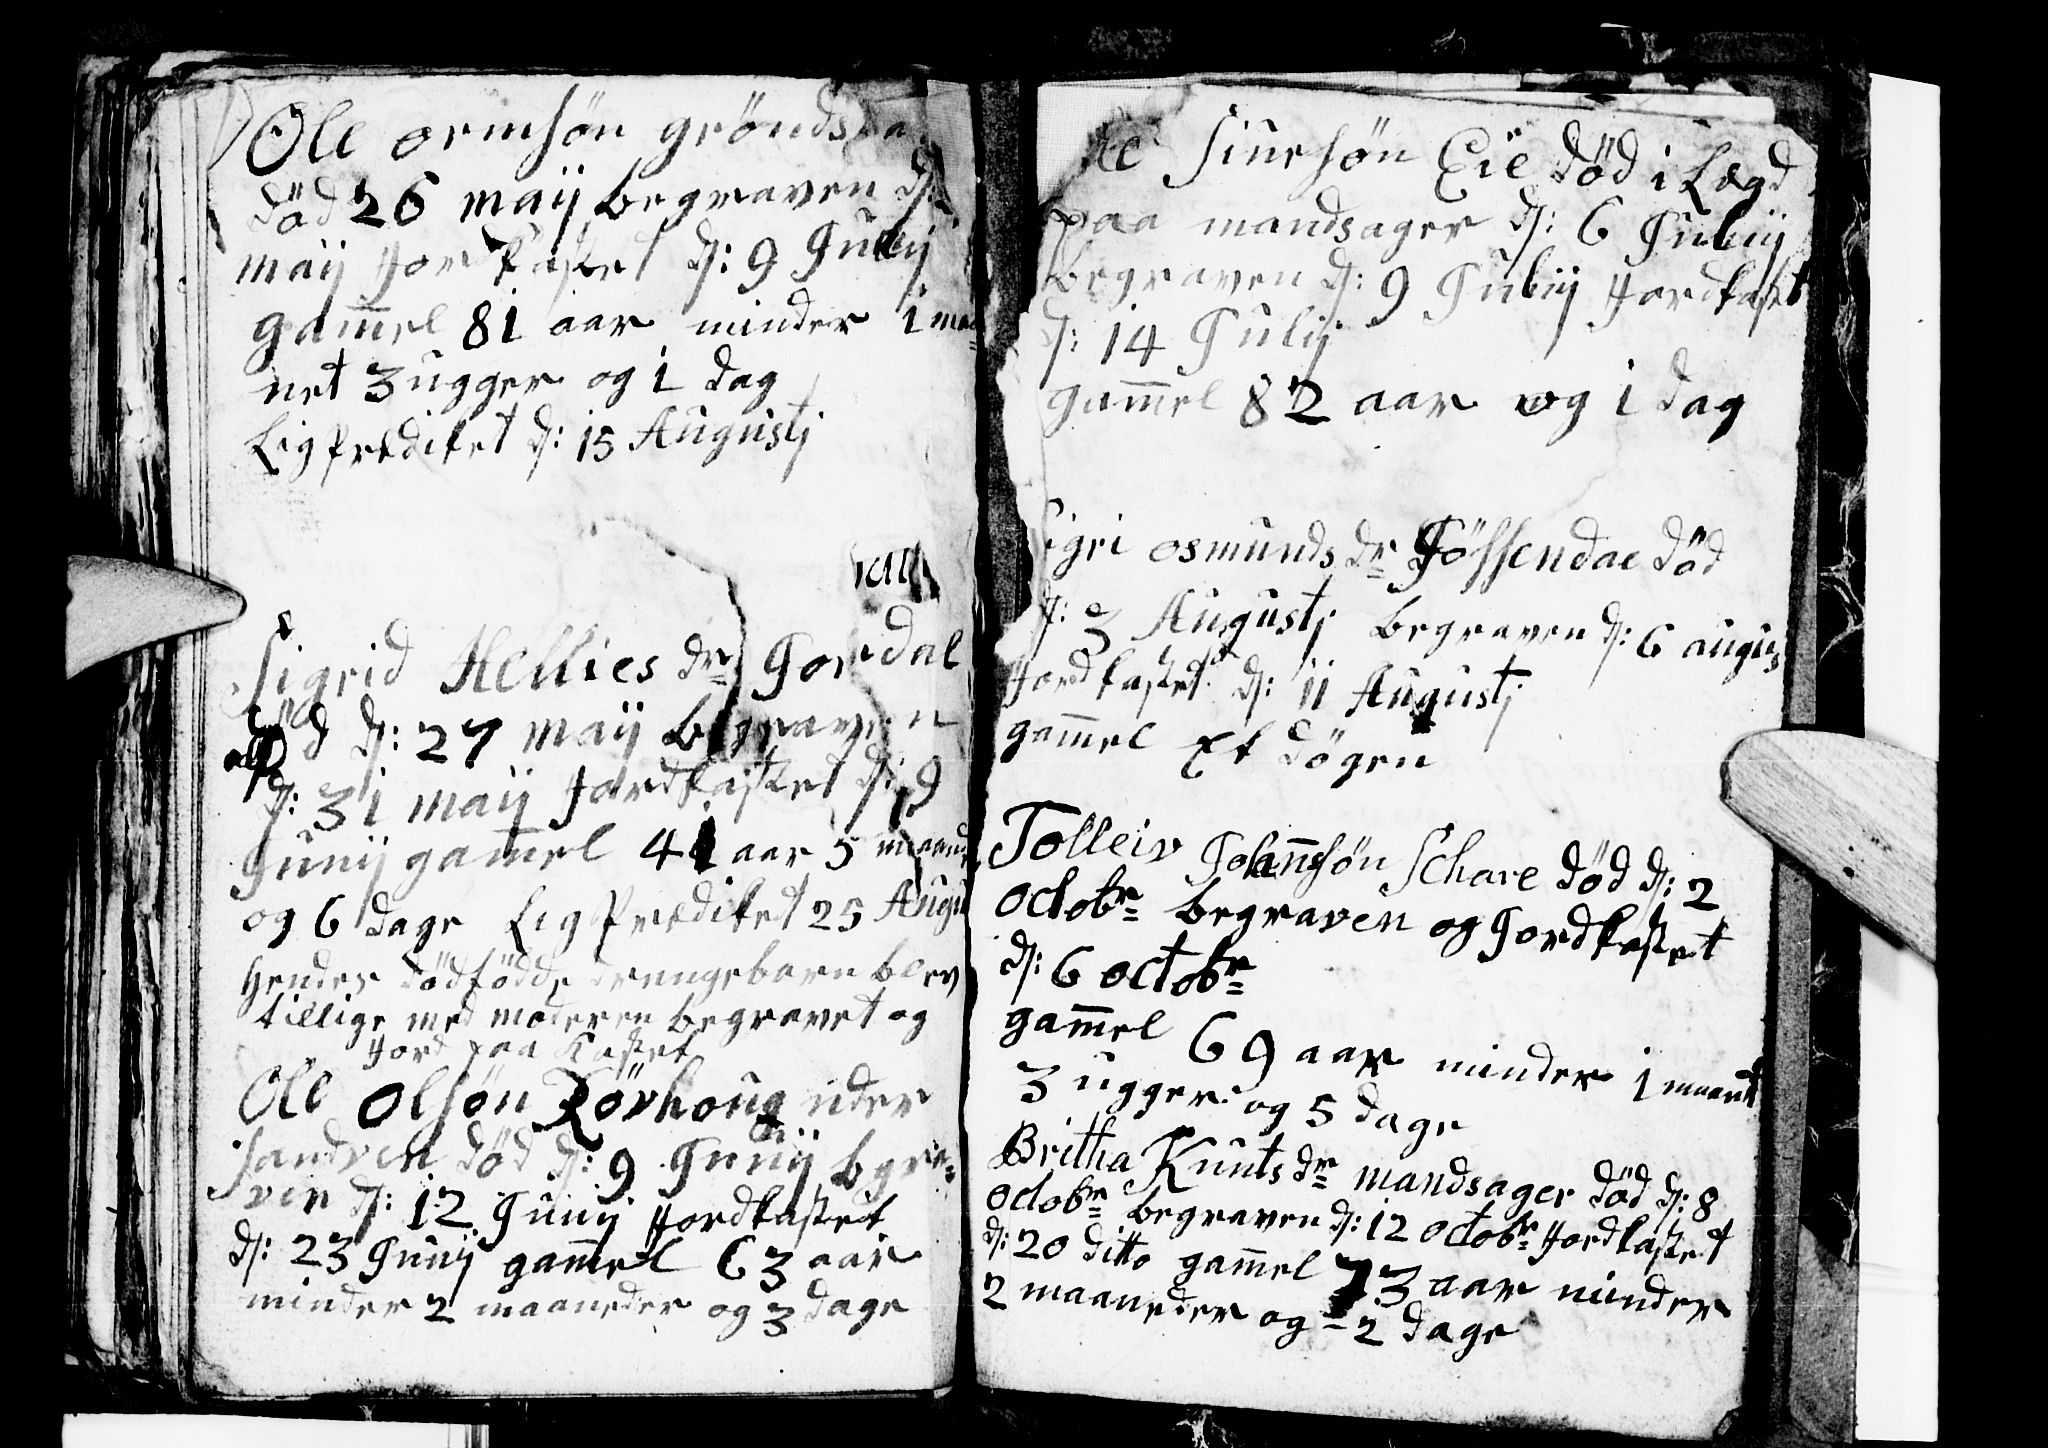 Ole ormsøn grøndsda
død 26 maij begraven d:
maij Jordkastet d: 9 Julij
gam̄el 81 aar minder 1 maa
net 3 ugger og 1 dag
Ligprædiket d: 15 Augustj
Sigrid Hellies dr Jordal
død d: 27 maij begraven
d: 31 maij Jordkastet d: 9
Junij gam̄el 41 aar 5 maand
og 6 dage Ligprædiket 25 Augu
hendes dödfödde drengebarn blev
tillige med moderen begravet og
Jord paa kastet
Ole olsøn Rörhoug under
Sandven död d: 9 Junij begra=
ven d: 12 Junij Jordkastet
d: 23 Junij gam̄el 63 aar
minder 2 maaneder og 3 dage
Siursøn Eie död i Lægd
paa mandsager d: 6 Julij
begraven d: 9 Julij Jordkast
d: 14 Julij
gam̄el 82 aar og 1 dag
Sigri osmunds dr Jössendal död
d: 3 Augustj begraven d: 6 augus
Jordkastet d: 11 Augustj
gam̄el Et Dögen
Tolleiv Johan̄søn Schare död d: 2
octobr begraven og Jordkastet
d: 6 octobr
gam̄el 69 aar minder 1 maant
3 ugger og 5 dage
Britha Kunts dr mandsager död d: 8
octobr begraven d: 12 octobr Jordkastet
d: 20 ditto gam̄el 73 aar minder
2 maaneder og 2 dage